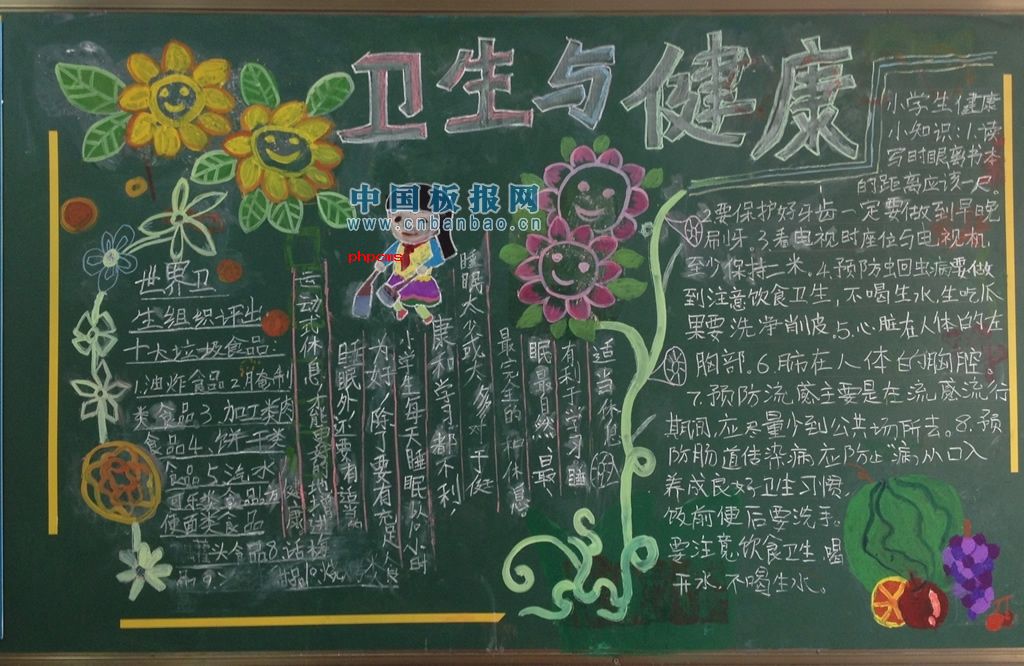 卫生与健康
中国板报网
www.cnbanbao.cn
phpcms
世界卫
生组织评出
十大垃圾食品
1.油炸食品2.腌制
类食品3.加工类肉
食品4.饼干类
食品5.汽水
可乐类食品
便面类食品
适当休息
有利于学习睡
眠最自然、最
最完全的一种休息
睡眠太少或太多对于健
康和学习都不利,
小学生每天睡眠以
为好,除了要有充足
睡眠外还要有适当
运动和休息,才能更好
小学生健康
小知识:1.读
写时眼离书本
的距离应该一尺。
2.要保护好牙齿一定要做到早晚
刷牙。3.看电视时座位与电视机
至少保持二米。4.预防蛔虫病要做
到注意饮食卫生,不喝生水,生吃瓜
果要洗净削皮。5.心脏在人体的左
胸部。6.肺在人体的胸腔。
7.预防流感主要是在流感流行
期间,应尽量少到公共场所去。8.预
防肠道传染病应防止“病从口入
养成良好卫生习惯,
饭前便后要洗手。
要注意饮食卫生,喝
开水,不喝生水。